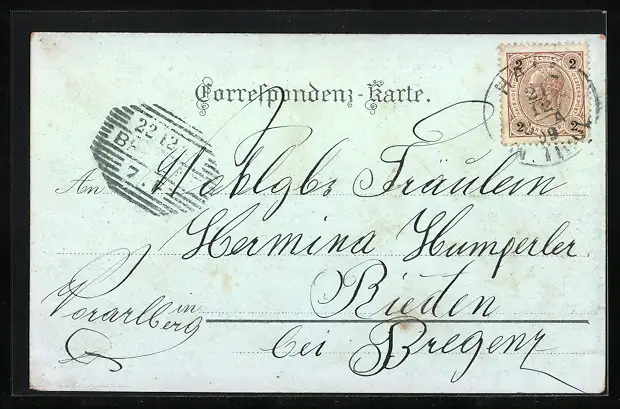 Correspondenz-Karte.
2 2
2 2
22 12
7.V
An Wohlgb. Fräulein
Hermina Humperler
Rieden
in
Vorarlberg
bei Bregenz